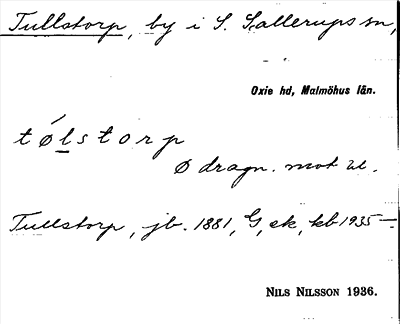 Tullstorp, by i S. Sallerups sn,
Oxie hd, Malmöhus län.
t ǿ l s t o r p
ø dragn. mot u.
Tullstorp, jb. 1881, G, ek, kb 1935 —.
NILS NILSSON 1936.